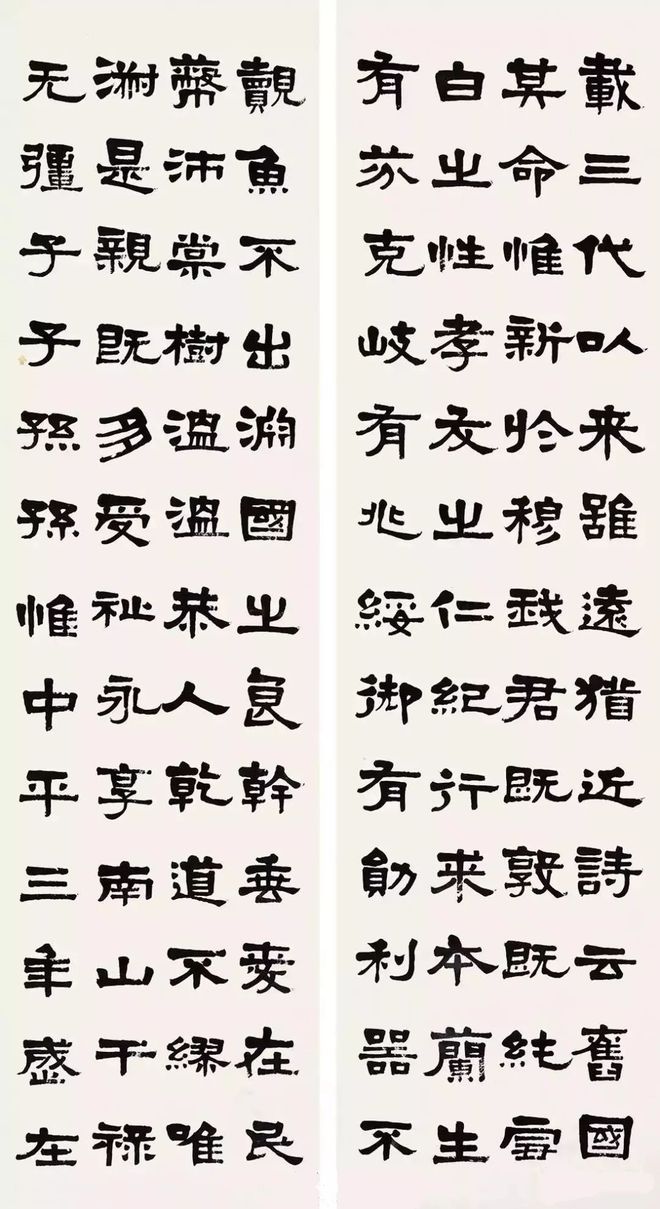 載三代以来雖遠猶近詩云舊國
其命惟新於穆我君既敦既純雪
白之性孝友之仁紀行来本蘭生
有芬克岐有兆綏御有勛利器不
覿魚不出淵國之良幹垂愛在民
蔽沛棠樹溫溫恭人乾道不繆唯
淑是親既多受祉永享南山干禄
无彊子子孫孫惟中平三年歲在